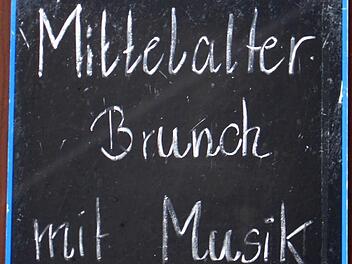 Mittelalter
Brunch
mit Musik